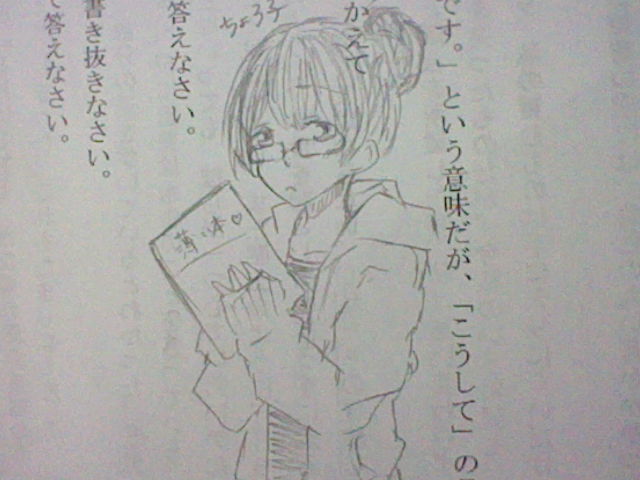 です。」という意味だが、「こうして」の
かえて
ちょろ子
薄い本♡
答えなさい。
書き抜きなさい。
て答えなさい。